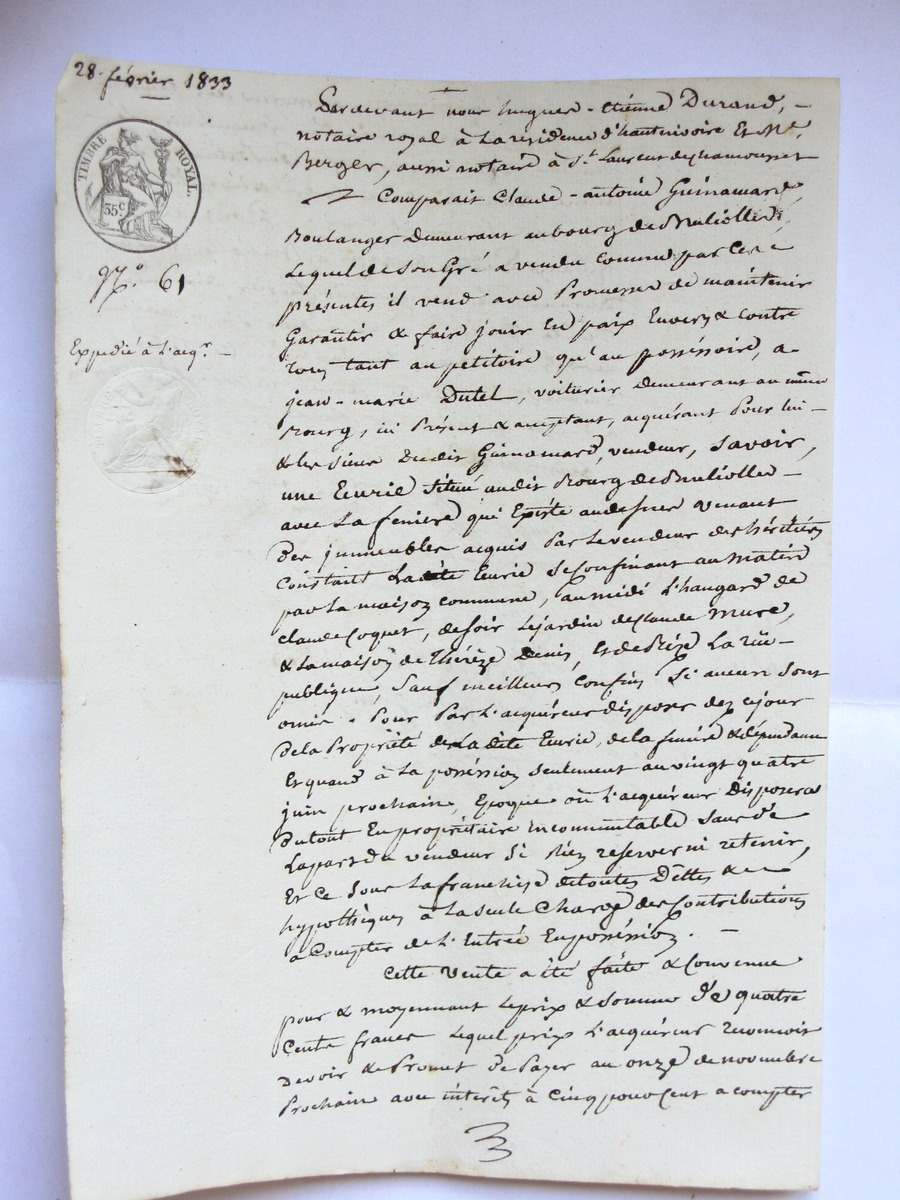 28. février 1833
TIMBRE ROYAL.
35c
N.° 61
Expedié à l'acqr. —
Pardevant nous hugues-étienne Durand, -
notaire royal à la résidence d'hauterivoire Et Me.
Berger, aussi notaire à St. Laurent de chamousset
Comparait Claude-antoine Guinamard
Boulanger Demeurant au bourg de Brulliolles,
Lequel de Son Gré a vendu comme par Ces
présentes il vend avec Promesse de maintenir
Garantir & faire jouir En paix Envers & contre
tous tant au petitoire qu'au posséssoire, a
jean-marie Dutel, voiturier demeurant au même
Bourg, ici Présent & acceptant, acquérant Pour lui -
& les siens Dudit Guinamard, vendeur, Savoir,
une Ecurie Située audit Bourg de Brulliolles -
avec La feniere qui Existe au dessus venant
Des immeubles acquis Par Le vendeur des héritiers
Constant Ladite Ecurie Se Confinant au Matin
par La maison commune, au midi L'hangard de
Claude Coquet, de soir Le jardin de Claude Mure,
& La maison de Thérèze Denis, Et de Bize La rue -
publique, Sauf meilleurs Confins Si aucuns Sont
omis. Pour Par L'acquéreur disposer dez cejour
De la Propriété de Ladite Ecurie, de la feniere & dépendances
Et quand à La poséssion seulement au vingt quatre
juin prochain, Epoque où L'acquéreur Disposera
Du tout En propriétaire incommutable Sans De
La part du vendeur Si Rien reserver ni retenir,
Et Ce Sous La franchise de toutes Dettes &
hypothèques à La seule Charge des Contributions
à Compter de L'Entrée En poséssion. —
Cette Vente a été faite & Convenue
pour & moyennant Le prix & Somme De quatre
Cents francs Lequel prix L'acquéreur reconnoit
Devoir & Promet De Payer au onze de novembre
Prochain avec intérêts à Cinq pour Cent a compter